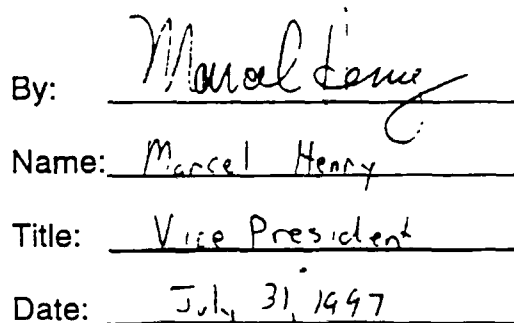 By: Marcel Henry
Name: Marcel Henry
Title: Vice President
Date: July 31, 1997